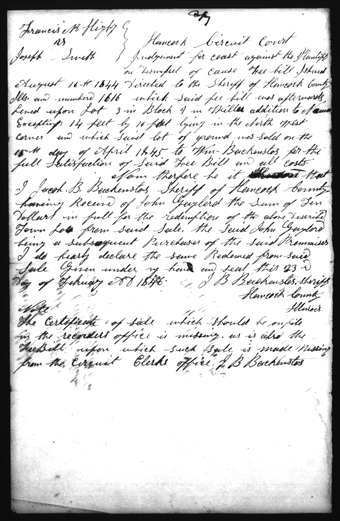 Francis M Higby
vs
Joseph Smith
Hancock Circuit Court
Judgement for cost against the Plaintiff
on dismisel of cause Fee bill Ishued
August 16th 1844 Directed to the Sheriff of Hancock County
Ills and numbered 1616 which said fee bill was afterwards
Levied upon Lot 3 in Block 9 in addition to
Excepting 14 feet by 14 feet lying in the North West
corner and which said lot of ground was sold on the
15th day of April 1845 to Wm Backenstos for the
full Satisfaction of Said Fee Bill and all costs
Now therfore be it that
I Jacob B Backenstos Sheriff of Hancock County
having Received of John Gaylord the Sum of Ten
Dollars in full for the redemption of the above described
Town Lot from said Sale. the Said John Gaylord
being a subsequent Purchaser of the said Premises
I do hearby declare the same Redemed from said
Sale Given under my hand and seal this 23rd
Day of February AD 1846. J B Backenstos, Sheriff
Hancock County
Illinois
Note
The Certificate of sale which should be on file
in the recorders office is missing, as is also the
Fee Bill upon which such Sale is made missing
from the Circuit Clerks office, J B Backenstos